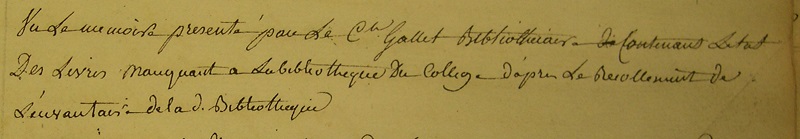 Vu Le memoire presenté par Le Cen Gallet Bibliothecaire de Contenant Letat
Des Livres manquant a Labibliotheque Du College d'apres Le Recollement de
L'euvantaire de la d. Bibliotheque